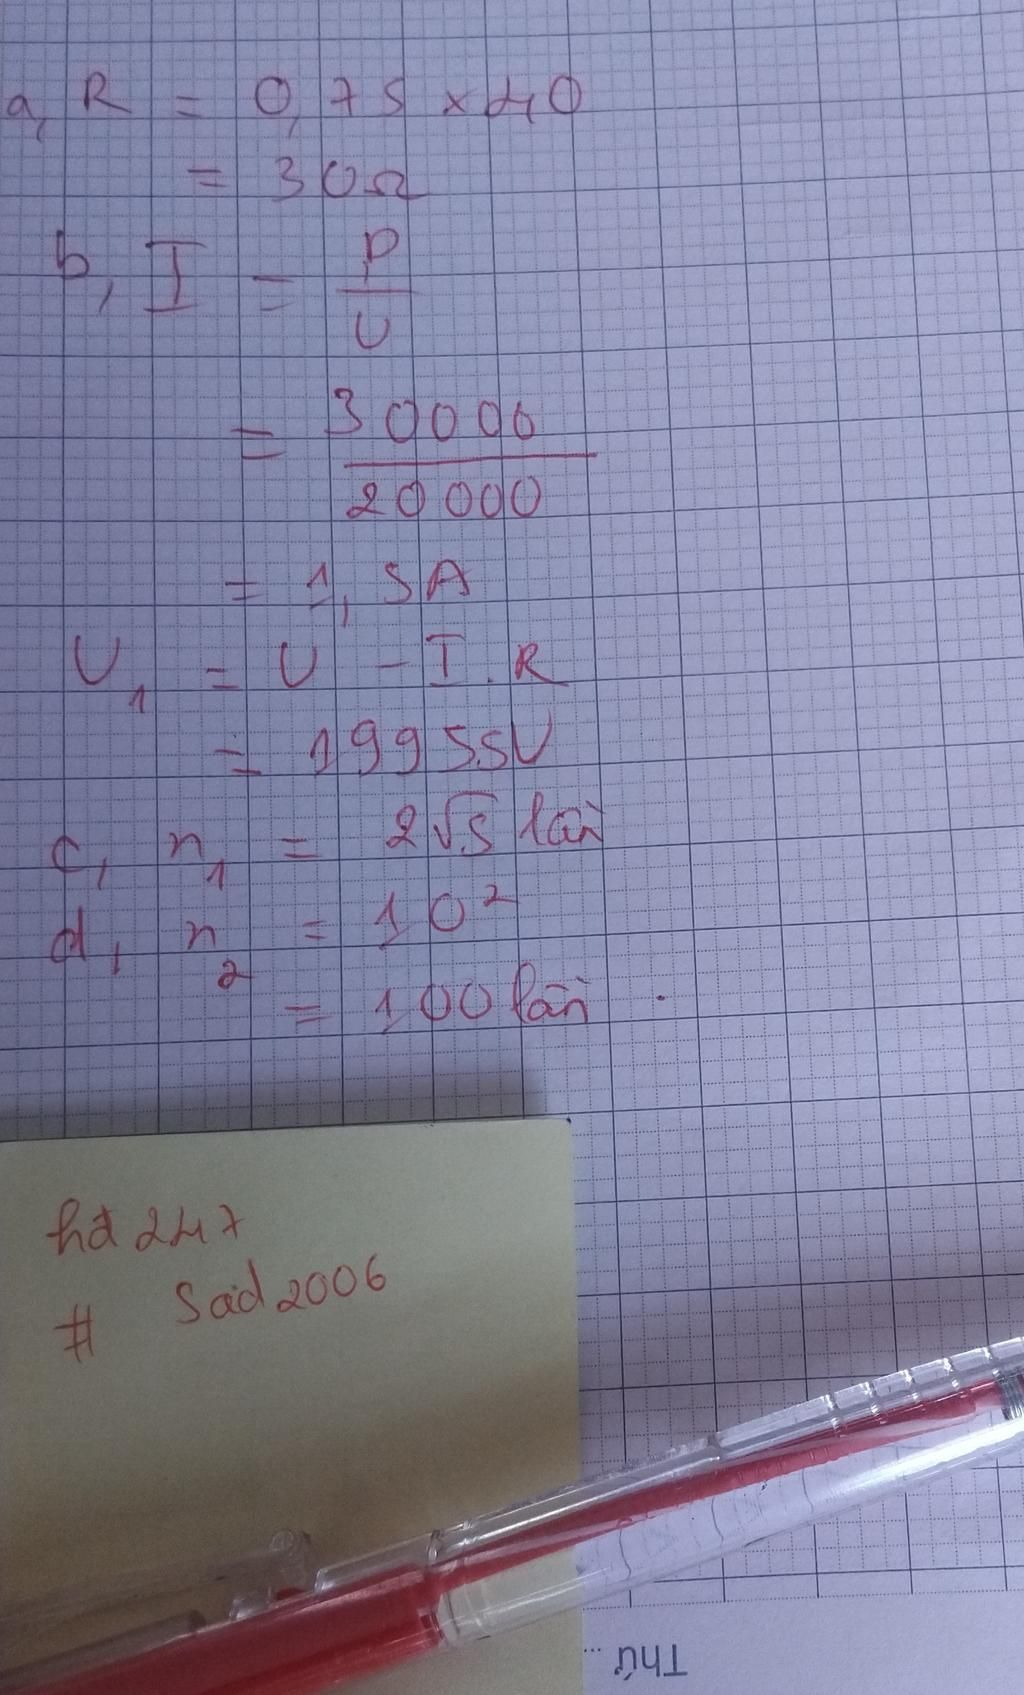 a, R = 0,75 x 40
= 30Ω
b, I = P/U
= 30000/20000
= 1,5A
U₁ = U - I.R
= 19955V
c, n₁ = 2√5 lần
d, n₂ = 10²
= 100 lần.
hd 247
# Sad 2006
Thứ ...